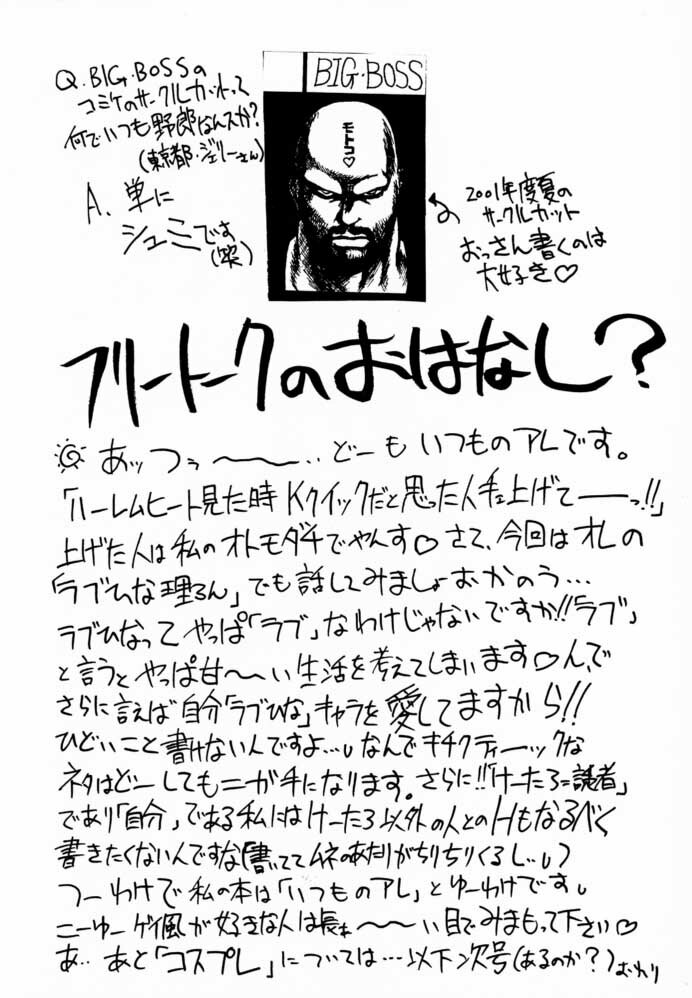 Q. BIG・BOSSの
コミケのサークルカットって
何でいつも野郎なんスか?
(東京都・ジェリーさん)
A. 単に
シュミです
(笑)
BIG・BOSS
モトコ♡
2001年度夏の
サークルカット
おっさん書くのは
大好き♡
フリートークのおはなし?
あッつぅ〜〜‥どーもいつものアレです。
「ハーレムヒート見た時Kクイックだと思った人手ェ上げてーーっ!!」
上げた人は私のオトモダチでやんす♡さて、今回はオレの
「ラブひな理ろん」でも話してみましょおかのう…
ラブひなってやっぱ「ラブ」なわけじゃないですか!!「ラブ」
と言うとやっぱ甘〜〜い生活を考えてしまいます♡んで
さらに言えば自分「ラブひな」キャラを愛してますから!!
ひどいこと書けない人ですよ…なんでキチクティーックな
ネタはどーしてもニガ手になります。さらに!!「けーたろ=読者」
であり「自分」である私にはけーたろ以外の人とのHもなるべく
書きたくないんですな(書いててムネのあたりがちりちりくるし‥)
つーわけで私の本は「いつものアレ」とゆーわけです
こーゆー芸風が好きな人は長ぁ〜〜い目でみまもって下さい♡
あ‥あと「コスプレ」については…以下次号(あるのか?)おわり